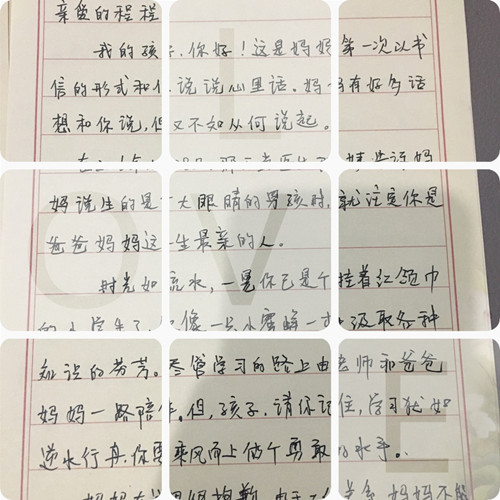 亲爱的程程
我的孩子,你好!这是妈妈第一次以书
信的形式和你说说心里话。妈妈有好多话
想和你说,但又不知从何说起。
妈说生的是个大眼睛的男孩时,就注定你是
爸爸妈妈这一生最亲的人。
时光如流水,一晃你已是个挂着红领巾
的小学生了,像一只小蜜蜂一 汲取各种
知识的芬芳。尽管学习的路上由老师和爸爸
妈妈一路陪伴。但,孩子,请你记住,学习就如
逆水行舟,你要乘风而上做个勇敢的水手。
妈妈
LOVE